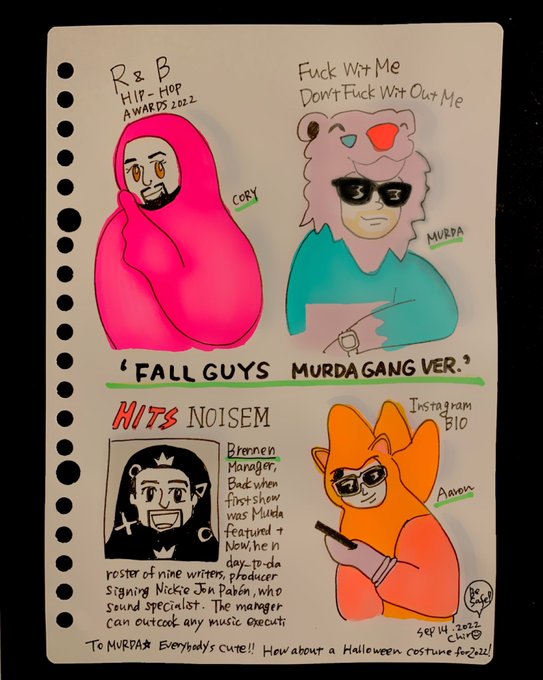 R & B
HIP-HOP
AWARDS 2022
CORY
Fuck Wit Me
Don't Fuck Wit Out Me
MURDA
'FALL GUYS MURDA GANG VER.'
HITS NOISEM
Brennen
Manager,
Back when
first show
was Murda
featured +
Now, he n
day-to-da
roster of nine writers, producer
signing Nickie Jon Pabón, who
sound specialist. The manager
can outcook any music executi
Instagram
BIO
Aaron
Be
Safe!!
Sep 14. 2022
Chiro
To MURDA☆ Everybody's cute!! How about a Halloween costume for 2022!